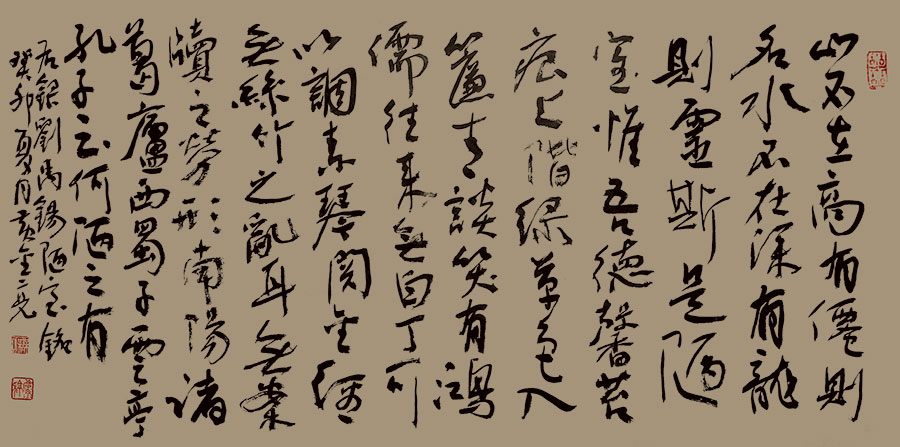 山不在高有僊則
名水不在深有龍
則靈斯是陋
室惟吾德馨苔
痕上階緑草色入
簾青談笑有鴻
儒往来無白丁可
以調素琴閲金經
無絲竹之亂耳無案
牘之勞形南陽諸
葛廬西蜀子雲亭
孔子云何陋之有
右錄劉禹錫陋室銘
癸卯夏月